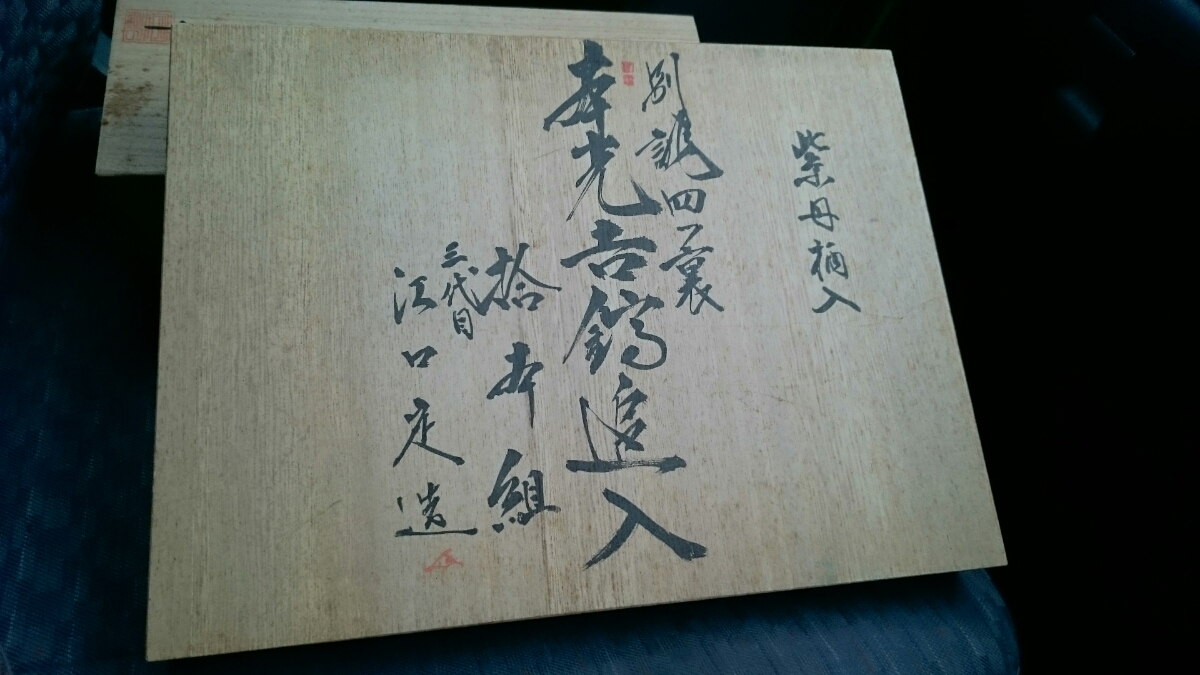 紫丹柄入
別誂四ツ裏
本光吉鎬追入
拾本組
三代目
江口定造